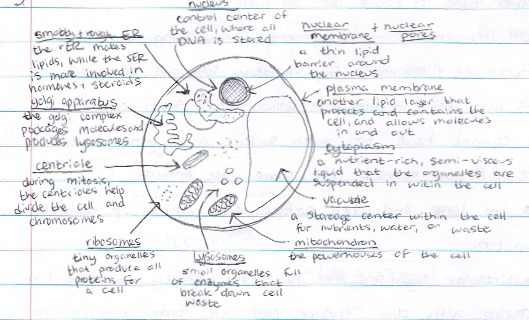 nucleus
control center of
the cell, where all
DNA is stored
nuclear + nuclear
membrane pores
a thin lipid
barrier around
the nucleus
smooth + rough ER
the rER makes
lipids, while the SER
is more involved in
hormones + steroids
golgi apparatus
the golgi complex
packages molecules and
produces lysosomes
centriole
during mitosis,
the centrioles help
divide the cell and
chromosomes
plasma membrane
another lipid layer that
protects and contains the
cell, and allows molecules
in and out
cytoplasm
a nutrient-rich, semi-viscous
liquid that the organelles are
suspended in within the cell
vacuole
a storage center within the cell
for nutrients, water, or waste
mitochondrion
the powerhouses of the cell
ribosomes
tiny organelles
that produce all
proteins for
a cell
lysosomes
small organelles full
of enzymes that
break down cell
waste